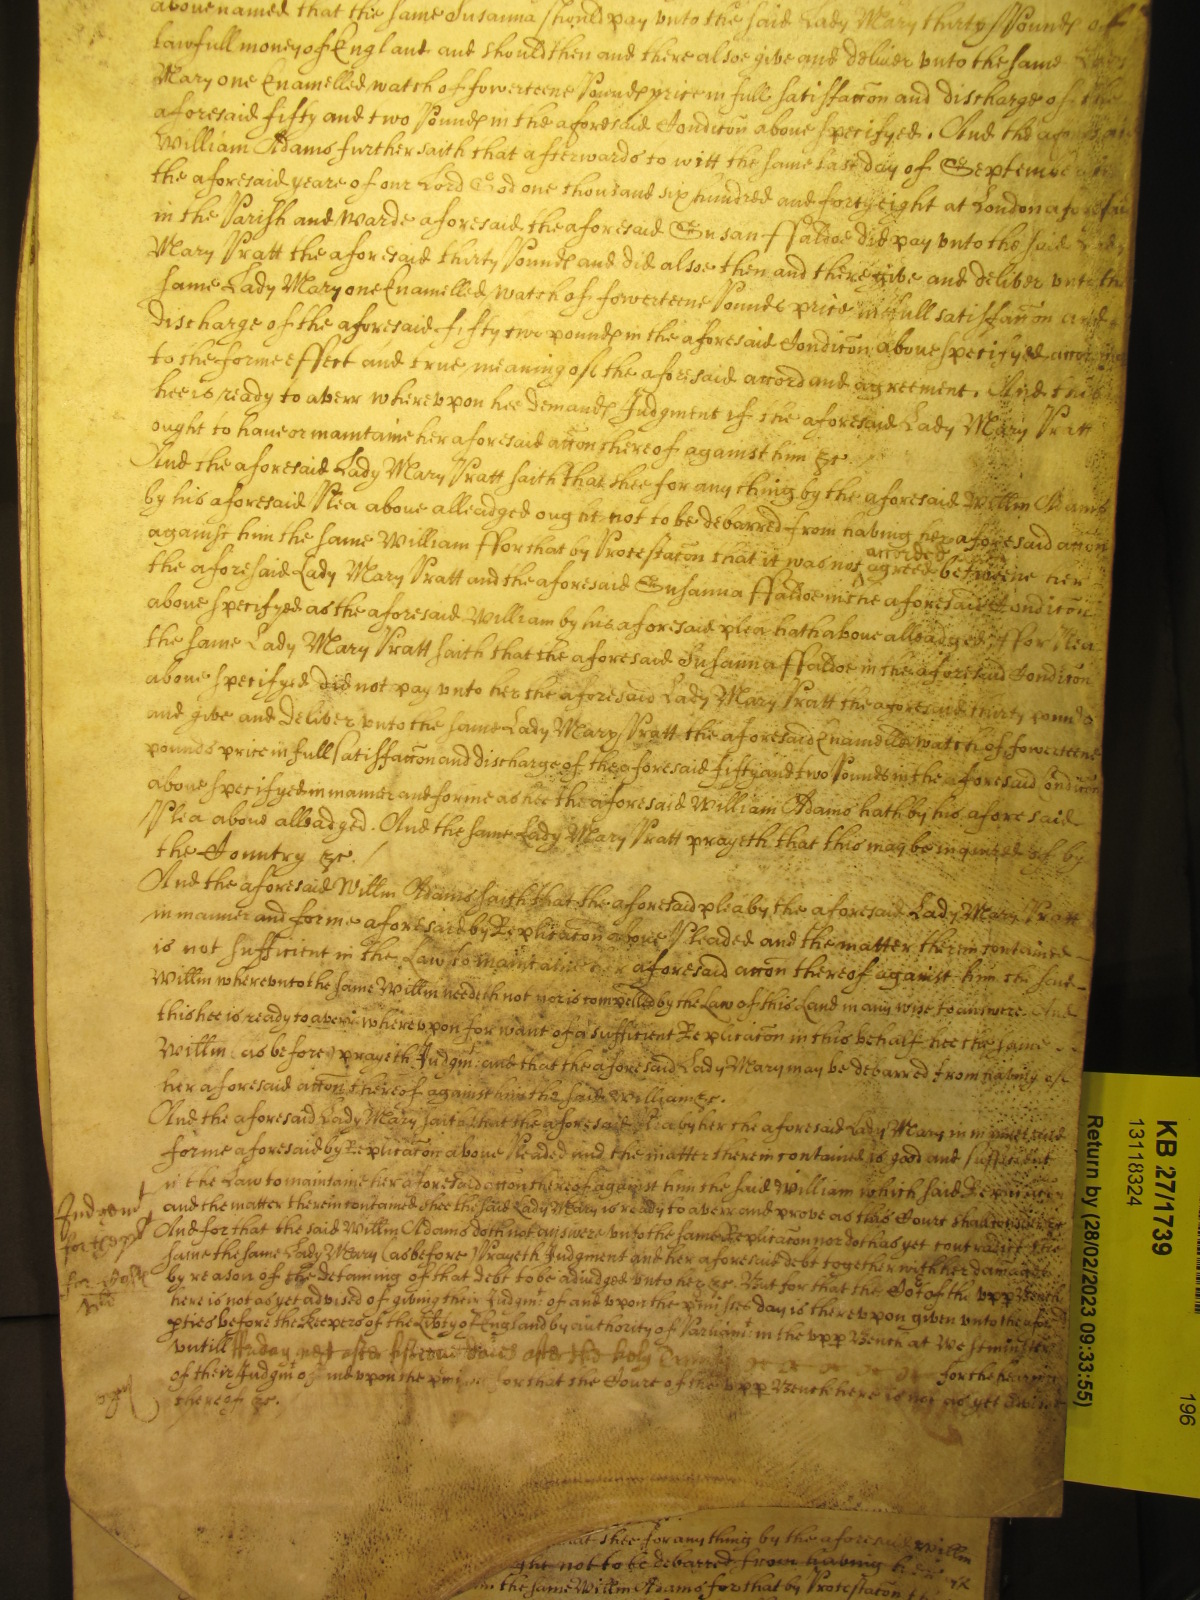 abouenamed that the same Susanna should pay vnto the said Lady Mary thirty Pounds of
lawfull money of England and should then and there alsoe give and deliver vnto the same Lady
Mary one Enamelled watch of fowerteene Pounds price in full satisfaccon and discharge of the
aforesaid fifty and two Pounds in the aforesaid Condicon above specifyed. And the aforesaid
William Adams further saith that afterwards to witt the same last day of September in
the aforesaid yeare of our Lord God one thousand six hundred and forty eight at London aforesaid
in the Parish and Warde aforesaid the aforesaid Susan ffaldoe did pay vnto the said Lady
Mary Pratt the aforesaid thirty Pounds and did alsoe then and there give and deliver vnto the
same Lady Mary one Enamelled watch of fowerteene Pounds price in full satisfaccon and
discharge of the aforesaid fifty two pounds in the aforesaid Condicon above specifyed according
to the forme effect and true meaning of the aforesaid accord and agreement. And this
hee is ready to averr wherevpon hee demands Judgment if the aforesaid Lady Mary Pratt
ought to haue or maintaine her aforesaid accon thereof against him &c.
And the aforesaid Lady Mary Pratt saith that shee for any thing by the aforesaid Willm Adams
by his aforesaid Plea above alleadged ought not to be debarred from having her aforesaid accon
against him the same William ffor that by Protestacon that it was not accorded agreed betweene her
the aforesaid Lady Mary Pratt and the aforesaid Susanna ffaldoe in the aforesaid Condicon
above specifyed as the aforesaid William by his aforesaid plea hath aboue alleadged ffor Plea
the same Lady Mary Pratt saith that the aforesaid Susanna ffaldoe in the aforesaid Condicon
above specifyed did not pay vnto her the aforesaid Lady Mary Pratt the aforesaid thirty pounds
and give and deliver vnto the same Lady Mary Pratt the aforesaid Enamelled watch of fowerteene
pounds price in full satisfaccon and discharge of the aforesaid fifty and two Pounds in the aforesaid Condicon
above specifyed in manner and forme as hee the aforesaid William Adams hath by his aforesaid
Plea above alleadged. And the same Lady Mary Pratt prayeth that this may be inquired of by
the Country &c.
And the aforesaid Willm Adams saith that the aforesaid plea by the aforesaid Lady Mary Pratt
in manner and forme aforesaid by Replicacon above Pleaded and the matter therein contained
is not sufficient in the Law to maintaine her aforesaid accon thereof against him the said
Willm wherevnto the same Willm needeth not nor is compelled by the Law of this Land in any wise to answere And
this hee is ready to averr wherevpon for want of a sufficient Replicacon in this behalf hee the same
Willm (as before) prayeth Judgmt and that the aforesaid Lady Mary may be debarred from having of
her aforesaid accon thereof against him the said William &c.
And the aforesaid Lady Mary saith that the aforesaid Plea by her the aforesaid Lady Mary in manner and
forme aforesaid by Replicacon above Pleaded and the matter therein contained is good and sufficient
in the Law to maintaine her aforesaid accon thereof against him the said William which said Replicacon
and the matter therein contained shee the said Lady Mary is ready to averr and prove as this Court shall consider &c
And for that the said Willm Adams doth not answere vnto the same Replicacon nor doth as yet contradict the
same the same Lady Mary (as before) Prayeth Judgment and her aforesaid debt together with her damages
by reason of the detaining of that debt to be adiudged vnto her &c. But for that the Cort of the vpp Bench
here is not as yet advised of giving their Judgmt of and vpon the premisses day is therevpon given vnto the aforesd
pties before the Keepers of the Libty of England by authority of Parliamt in the vpp Bench at Westminster
vntill ffriday next after fifteene daies after the holy Trinity for the hearing
of their Judgmt of and vpon the for that the Court of the vpp Bench here is not as yet advised
thereof &c.
Judgmt
for the plt
KB 27/1739
13118324
Return by (28/02/2023 09:33:55)
196
that shee for any thing by the aforesaid Willm
ght not to be debarred from having her
the same Willm Adams for that by Protestacon